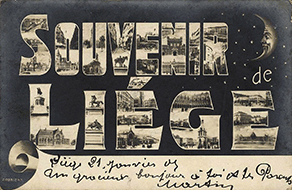 SOUVENIR
de
LIÈGE
Liège 21 janvier 05
Un gracieux bonjour à toi et le
Martin